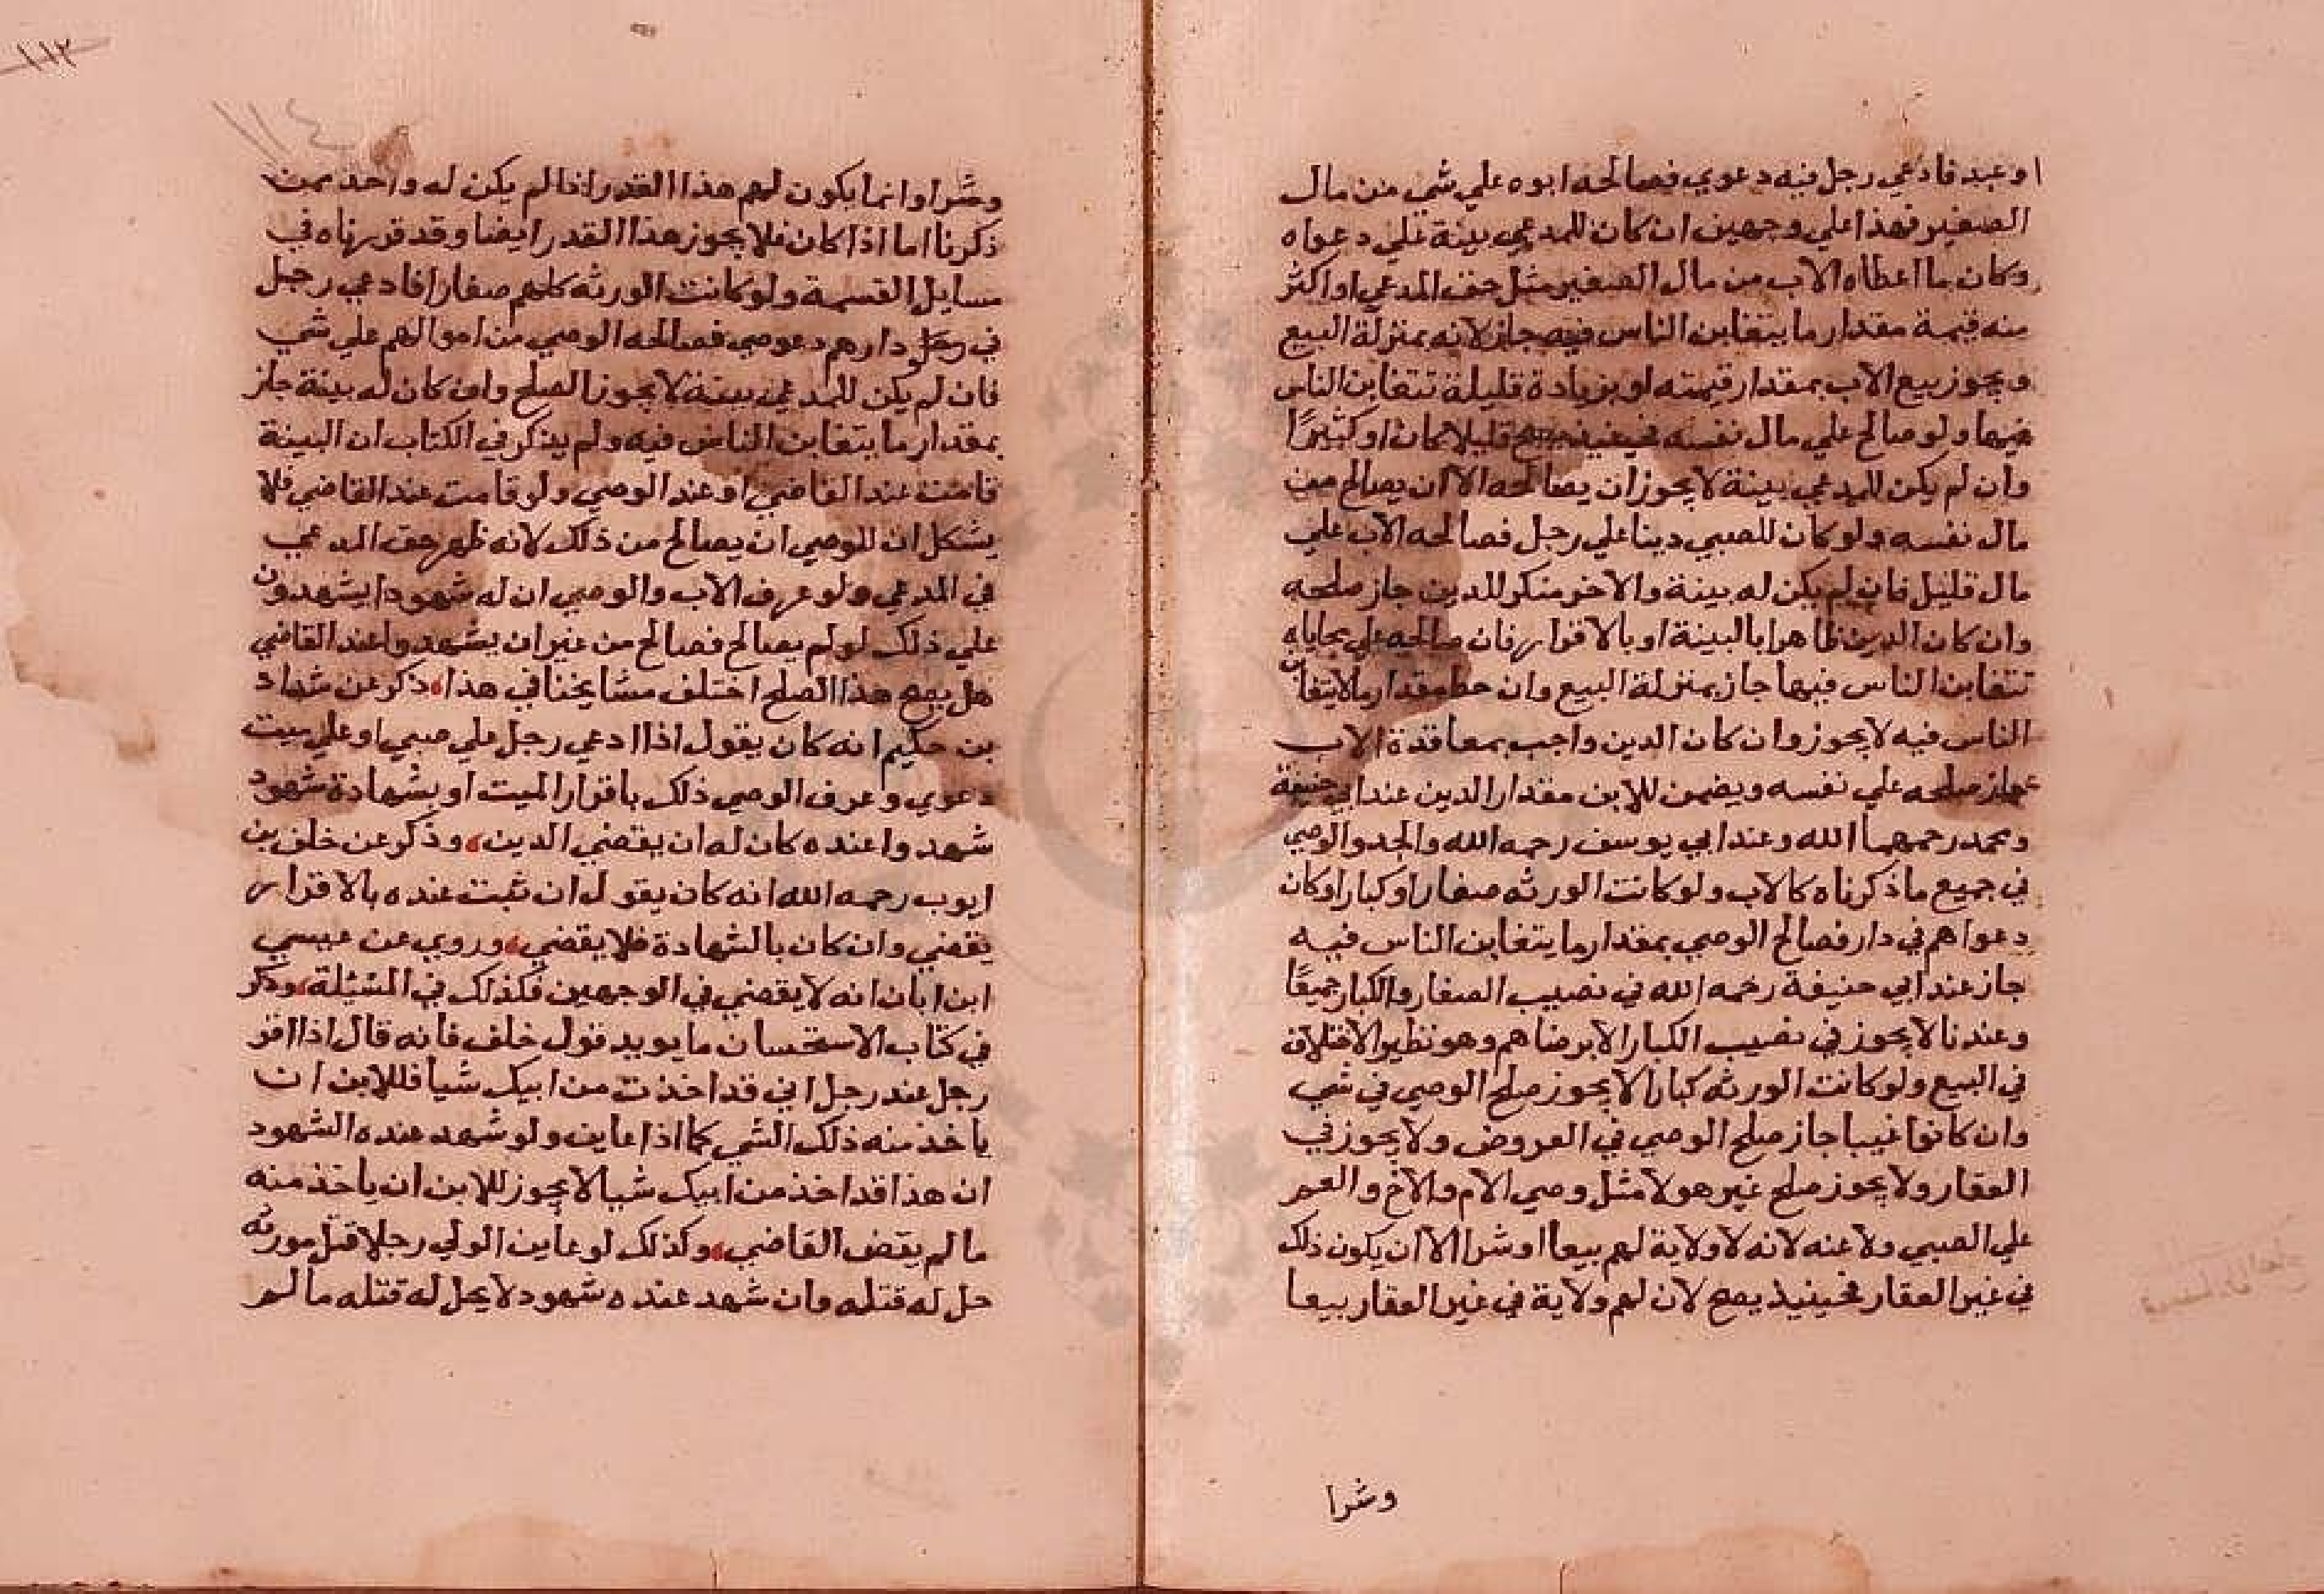 او عبد فادعي رجل فيه دعوي فصالحه ابوه علي شي من مال
الصغير فهذا علي وجهين ان كان للمدعي بينة علي دعواه
وكان ما اعطاه الاب من مال الصغير مثل حق المدعي او اكثر
منه قيمة مقدار ما يتغابن الناس فيه جاز لانه بمنزلة البيع
ويجوز بيع الاب بمقدار قيمته او بزيادة قليلة تتغابن الناس
فيها ولو صالح علي مال نفسه قليلا كان او كثيرًا
وان لم يكن للمدعي بينة لا يجوز ان يصالحه الا ان يصالح من
مال نفسه ولو كان للصبي دينا علي رجل فصالحه الاب علي
مال قليل فان لم يكن له بينة والاخر منكر للدين جاز صلحه
وان كان الدين ظاهرا بالبينة او بالاقرار فان صالحه علي محاباه
تتغابن الناس فيها جاز بمنزلة البيع وان حط مقدار ما لا يتغابن
الناس فيه لا يجوز وان كان الدين واجب بمعاقدة الاب
جاز صلحه علي نفسه ويضمن للابن مقدار الدين عند ابي حنيفة
ومحمد رحمهما الله وعند ابي يوسف رحمه الله والجد والوصي
في جميع ما ذكرناه كالاب ولو كانت الورثه صغارا وكبارا وكان
دعواهم في دار فصالح الوصي بمقدار ما يتغابن الناس فيه
جاز عند ابي حنيفة رحمه الله في نصيب الصغار والكبار جميعًا
وعندنا لا يجوز في نصيب الكبار الا برضاهم وهو نظير الاختلاف
في البيع ولو كانت الورثه كبارا لا يجوز صلح الوصي في شي
وان كانوا غيبا جاز صلح الوصي في العروض ولا يجوز في
العقار ولا يجوز صلح غير هولا مثل وصي الام والاخ والعم
علي الصبي ولا عنه لانه لا ولاية لهم بيعا او شرا الا ان يكون ذلك
في غير العقار فحينيذ يصح لان لهم ولاية في غير العقار بيعا
وشرا
١١٣
١١٤
وشرا وانما يكون لهم هذا القدر اذا لم يكن له واحد ممن
ذكرنا اما اذا كان فلا يجوز هذا القدر ايضا وقد قررناه في
مسايل القسمة ولو كانت الورثه كلهم صغارا فادعي رجل
في دارهم دعوي فصالحه الوصي من اموالهم علي شي
فان لم يكن للمدعي بينة لا يجوز الصلح وان كان له بينة جاز
بمقدار ما يتغابن الناس فيه ولم يذكر في الكتاب ان البينة
قامت عند القاضي او عند الوصي ولو قامت عند القاضي فلا
يشكل ان للوصي ان يصالح من ذلك لانه ظهر حق المدعي
في المدعي ولو عرف الاب والوصي ان له شهودا يشهدون
علي ذلك لو لم يصالح فصالح من غير ان يشهدوا عند القاضي
هل يصح هذا الصلح اختلف مشايخنا في هذا، ذكر عن شداد
بن حكيم انه كان يقول اذا ادعي رجل علي صبي او علي ميت
دعوي وعرف الوصي ذلك باقرار الميت او بشهادة شهود
شهدوا عنده كان له ان يقضي الدين، وذكر عن خلف بن
ايوب رحمه الله انه كان يقول ان ثبت عنده بالاقرار
يقضي وان كان بالشهادة فلا يقضي، وروي عن عيسي
ابن ابان انه لا يقضي في الوجهين فكذلك في المسئلة، وذكر
في كتاب الاستحسان ما يويد قول خلف فانه قال اذا اقر
رجل عند رجل اني قد اخذت من ابيك شيأ فللابن ان
ياخذ منه ذلك الشي كما اذا عاين ولو شهد عنده الشهود
ان هذا قد اخذ من ابيك شيا لا يجوز للابن ان ياخذ منه
ما لم يقض القاضي، وكذلك لو عاين الولي رجلا قتل مورثه
حل له قتله وان شهد عنده شهود لا يحل له قتله ما لم